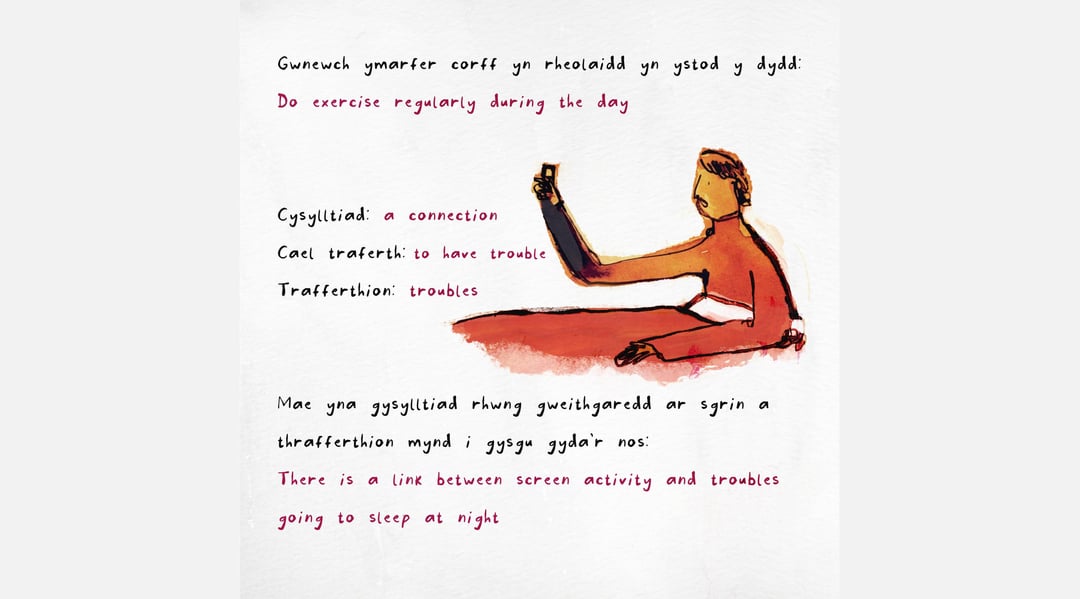 Gwnewch ymarfer corff yn rheolaidd yn ystod y dydd:
Do exercise regularly during the day
Cysylltiad: a connection
Cael traferth: to have trouble
Trafferthion: troubles
Mae yna gysylltiad rhwng gweithgaredd ar sgrin a
thrafferthion mynd i gysgu gyda'r nos:
There is a link between screen activity and troubles
going to sleep at night